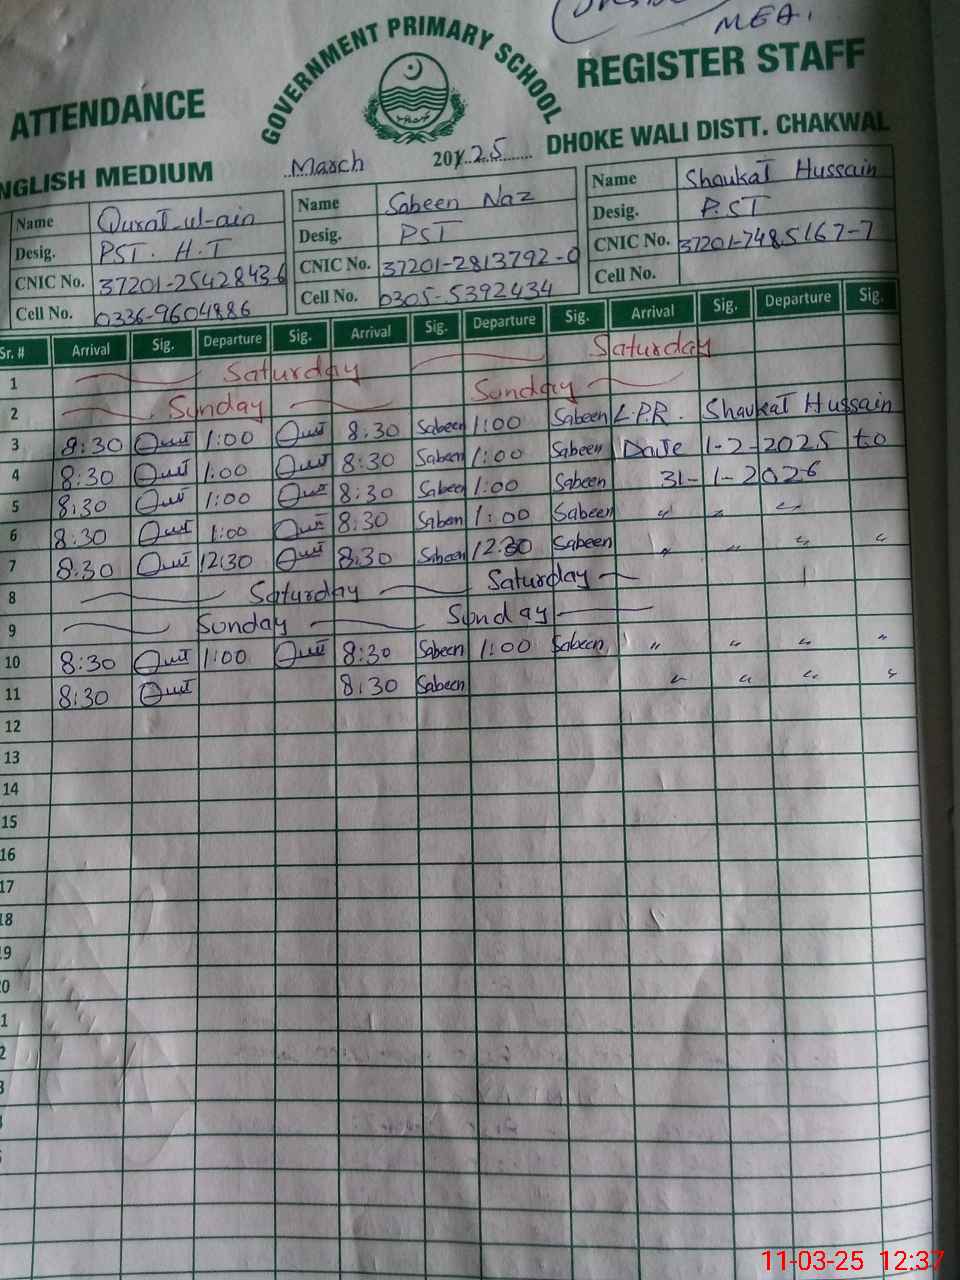 MEA.
GOVERNMENT PRIMARY SCHOOL
ATTENDANCE REGISTER STAFF
NGLISH MEDIUM March 20 25 DHOKE WALI DISTT. CHAKWAL
Name Qurat-ul-ain Name Sabeen Naz Name Shaukat Hussain
Desig. PST. H.T Desig. PST Desig. P.ST
CNIC No. 37201-2542843-6 CNIC No. 37201-2813792-0 CNIC No. 37201-7485167-7
Cell No. 0336-9604886 Cell No. 0305-5392434 Cell No.
Sr. # Arrival Sig. Departure Sig. Arrival Sig. Departure Sig. Arrival Sig. Departure Sig.
1 Saturday Saturday
2 Sunday Sunday
3 8:30 1:00 8:30 Sabeen 1:00 Sabeen L.P.R. Shaukat Hussain
4 8:30 1:00 8:30 Sabeen 1:00 Sabeen Date 1-2-2025 to
5 8:30 1:00 8:30 Sabeen 1:00 Sabeen 31-1-2026
6 8:30 1:00 8:30 Sabeen 1:00 Sabeen " " "
7 8:30 12:30 8:30 Sabeen 12:30 Sabeen " " " "
8 Saturday Saturday
9 Sunday Sunday
10 8:30 1:00 8:30 Sabeen 1:00 Sabeen " " " "
11 8:30 8:30 Sabeen " " " "
12
13
14
15
16
17
18
9
0
1
2
3
11-03-25 12:37